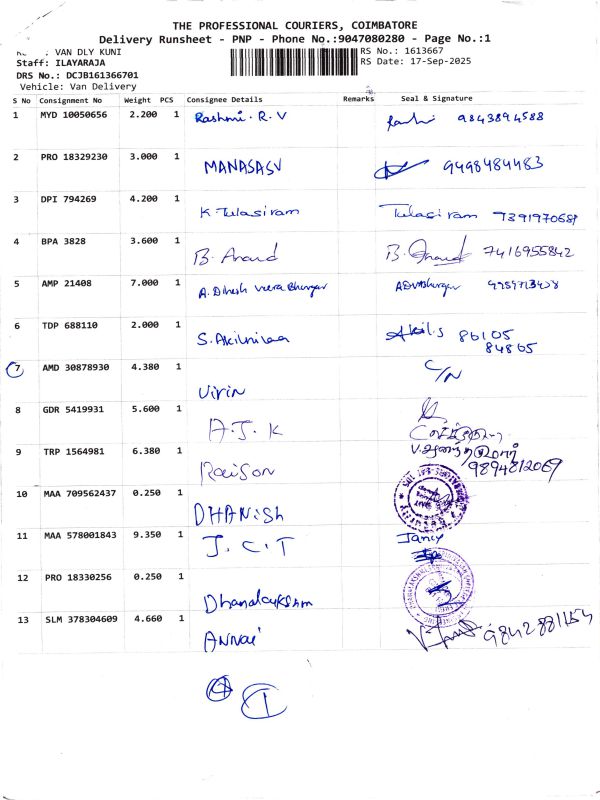 THE PROFESSIONAL COURIERS, COIMBATORE
Delivery Runsheet - PNP - Phone No.:9047080280 - Page No.:1
VAN DLY KUNI RS No.: 1613667
Staff: ILAYARAJA RS Date: 17-Sep-2025
DRS No.: DCJB161366701
Vehicle: Van Delivery
S No Consignment No Weight PCS Consignee Details Remarks Seal & Signature
1 MYD 10050656 2.200 1 Rashmi. R. V 9843894588
2 PRO 18329230 3.000 1 MANASASV 9498484483
3 DPI 794269 4.200 1 K Tulasiram Tulasiram 7391970581
4 BPA 3828 3.600 1 B. Anand B. Anand 7416955842
5 AMP 21408 7.000 1 A. Dinesh
6 TDP 688110 2.000 1 S. Akilnilaa Akil.S 86105
84865
7 AMD 30878930 4.380 1 Virin C/N
8 GDR 5419931 5.600 1 A.J.K
9 TRP 1564981 6.380 1 Raison 9894812069
10 MAA 709562437 0.250 1 DHANISH
11 MAA 578001843 9.350 1 J.C.T Jancy
12 PRO 18330256 0.250 1
13 SLM 378304609 4.660 1 ANNai